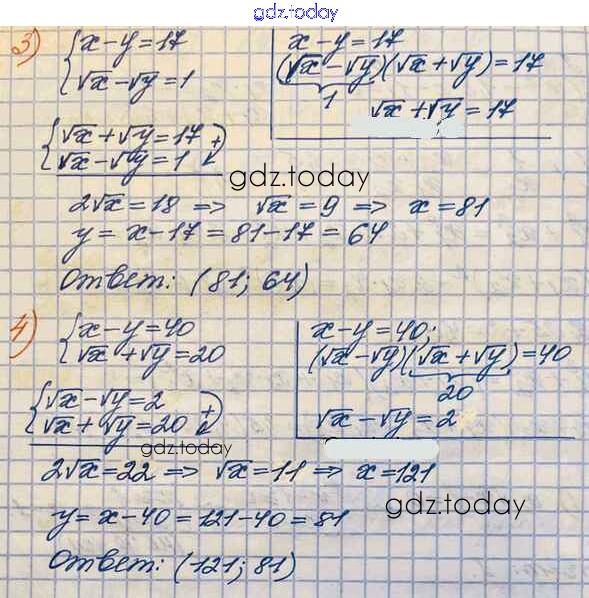 gdz.today
3) { x - y = 17
√x - √y = 1
x - y = 17
(√x - √y)(√x + √y) = 17
1
√x + √y = 17
{ √x + √y = 17
√x - √y = 1 +
gdz.today
2√x = 18 => √x = 9 => x = 81
y = x - 17 = 81 - 17 = 64
Ответ: (81; 64)
4) { x - y = 40
√x + √y = 20
x - y = 40;
(√x - √y)(√x + √y) = 40
20
√x - √y = 2
{ √x - √y = 2
√x + √y = 20 +
gdz.today
2√x = 22 => √x = 11 => x = 121
gdz.today
y = x - 40 = 121 - 40 = 81
Ответ: (121; 81)